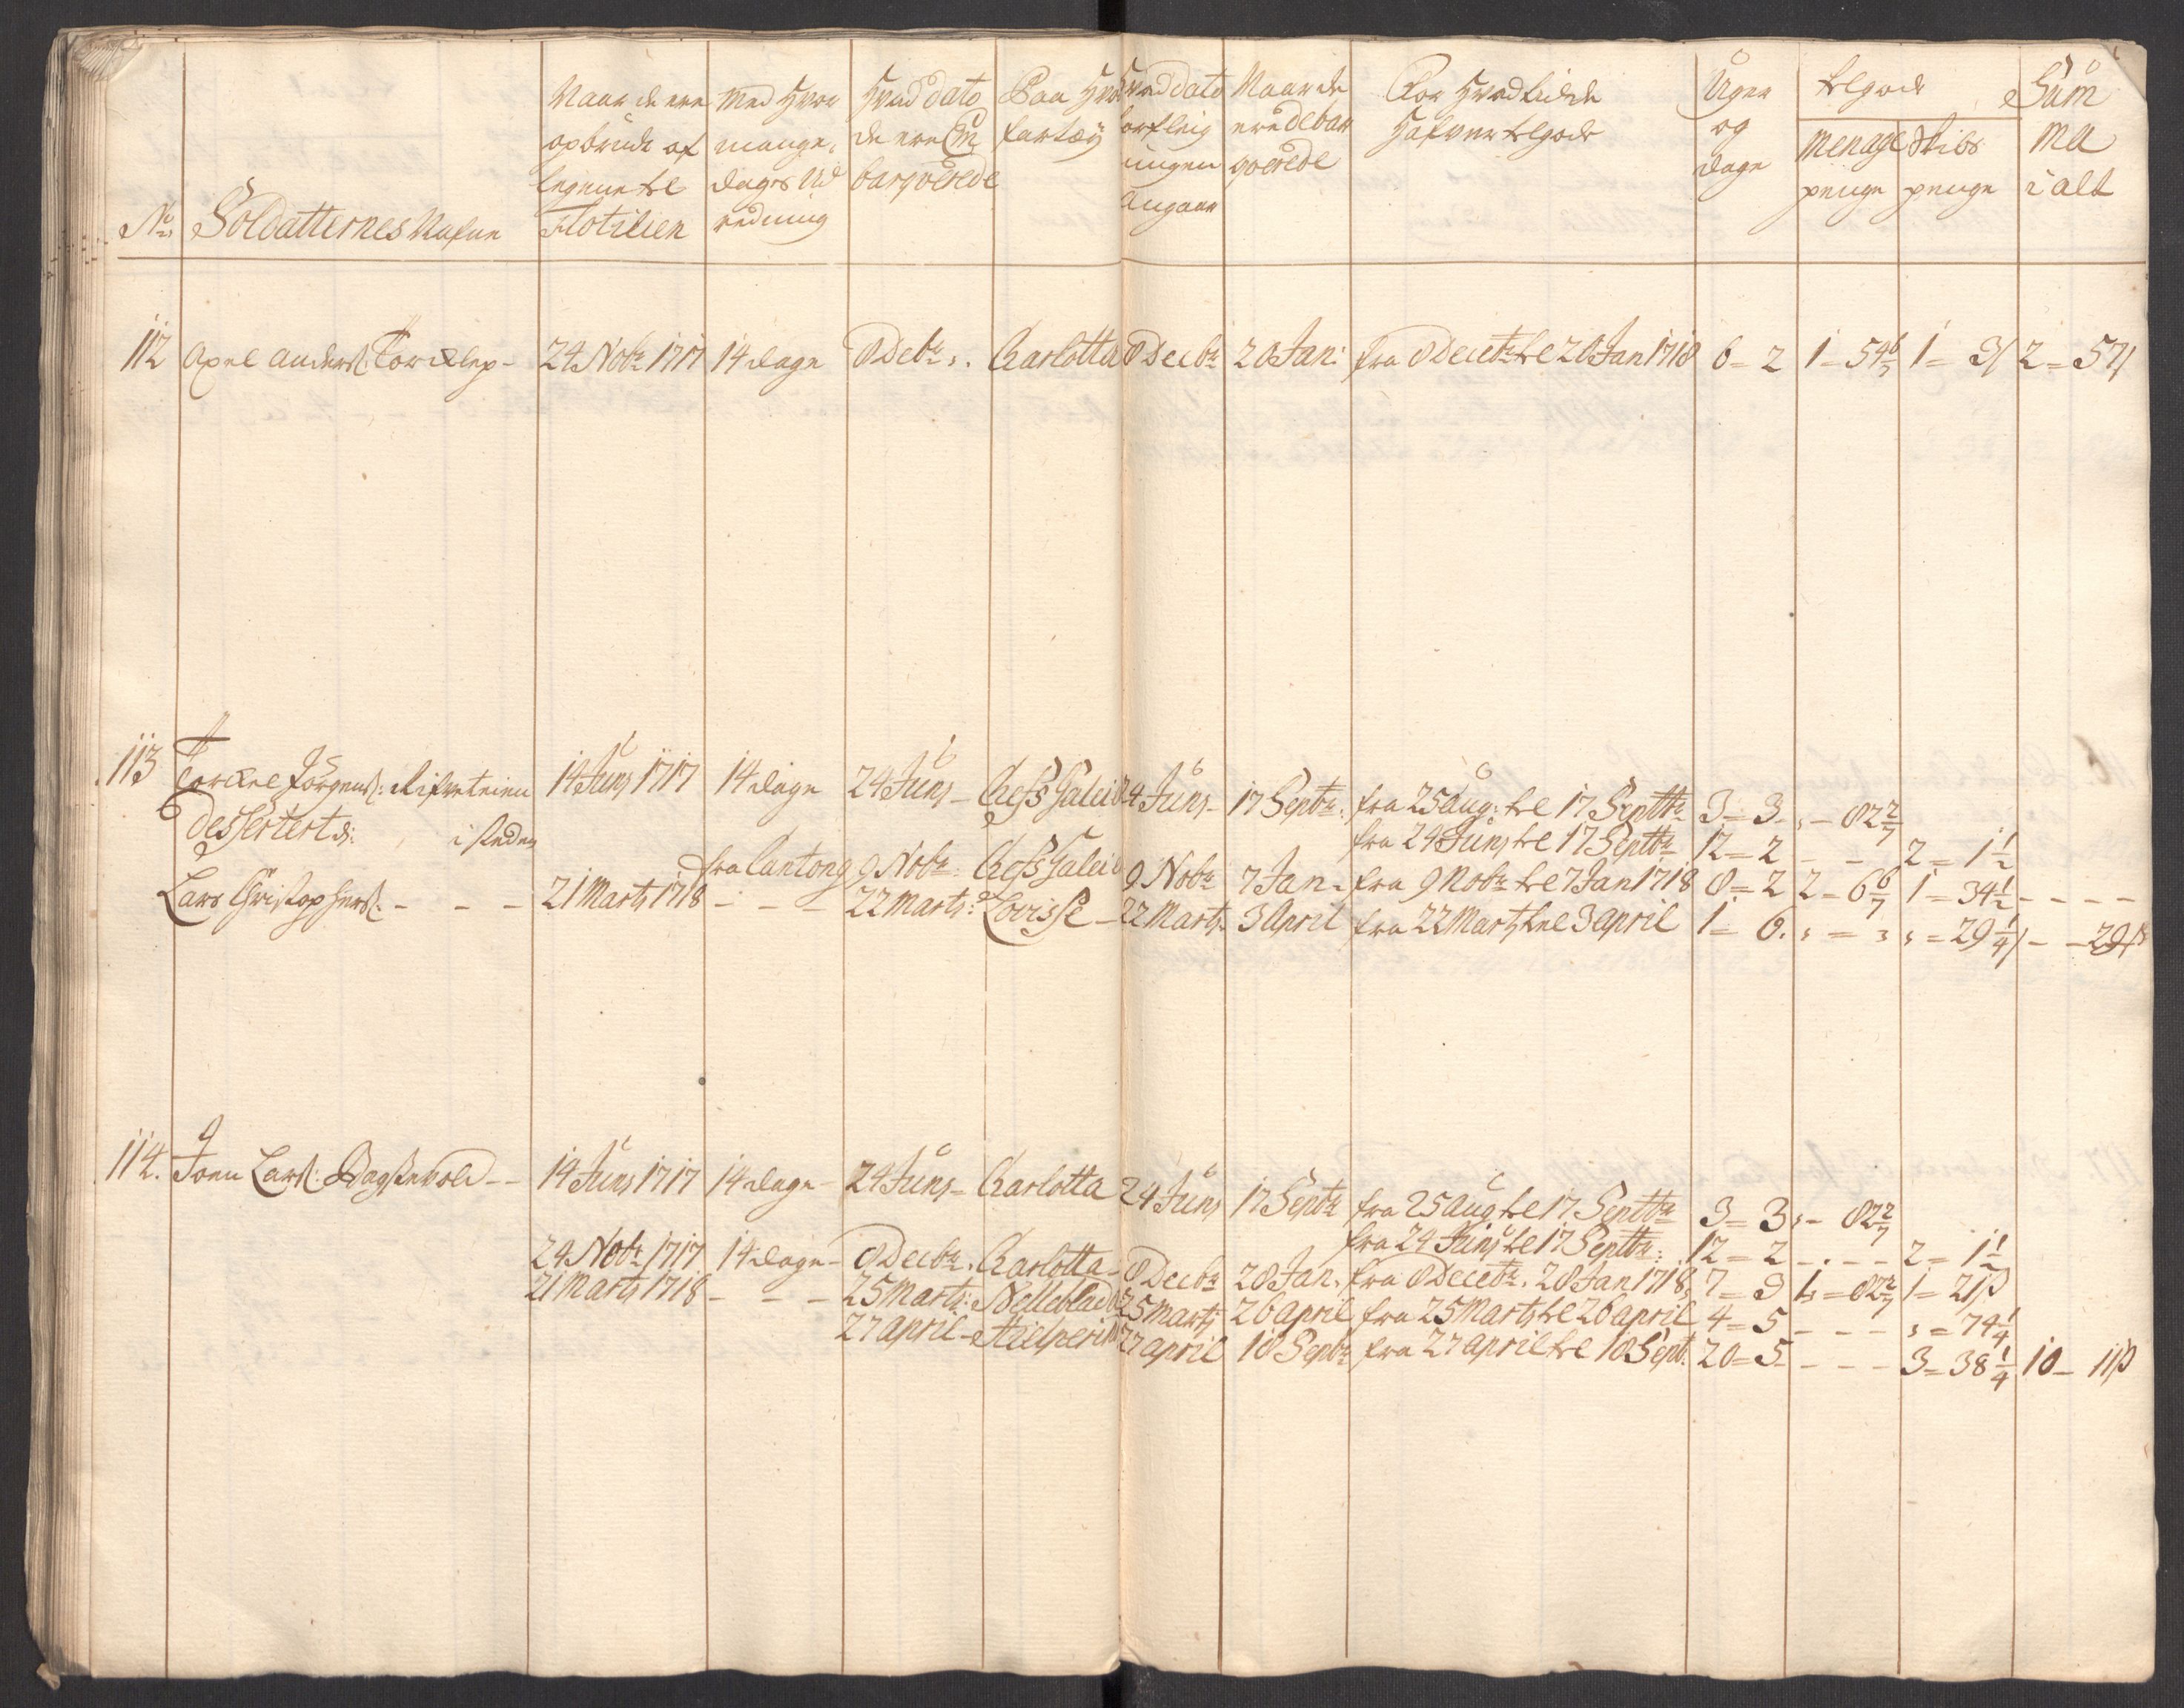 No Soldatternes Nafne
Naar de ere opbrudt af legene til Flotilien
Med hvor mange dages Ud redning
Hvad dato de ere Em barqverede
Paa hvad fartøy
Hvad dato forfleig ningen Angaar
Naar de ere debar qverede
For hvad tid de hafver tilgode
Uger og dage
tilgode
Menage penge
Skibs penge
Sum ma i alt
112 Axel Anders: Torkilsp- 24 Nobr 1717 14 dage 8 Debr: Charlotta 8 Decbr 20 Jan: fra 8 Decebr til 20 Jan 1718 6=2 1-54 6/7 1= 3/ 2=57/
113 Torkel Jørgens: 14 Juny 1717 14 dage 24 Juny- Chefs Galei 24 Juny- 17 Septbr: fra 25 Aug: til 17 Septtbr 3=3- :- 82 2/7
Dessertert d: i steden fra 24 Juny til 17 Septtbr 12=2 - - 2=1 1/2
fra Cantong 9 Nobr: Chefs Galei 9 Nobr 7 Jan- fra 9 Nobr til 7 Jan 1718 8=2 2-6 6/7 1=34 1/2 - - - -
Lars Christophers: - - - 21 Marty 1718 - - - 22 Marty: Lovisse - 22 Marty- 3 April fra 22 Marty til 3 April 1=6. :=: :=29 1/4/- -29/β
114. Joen Lars: 14 Juny 1717 14 dage- 24 Juny- Charlotta 24 Juny 17 Septbr fra 25 Aug til 17 Septtbr 3=3 :- 82 2/7
fra 24 Juny til 17 Septtbr: 12=2 - - - - 2=1 1/2
24 Nobr 1717 14 dage- 8 Decbr. Charlotta- 8 Decbr 28 Jan. fra 8 Decebr. 28 Jan 1718, 7=3 1=82 2/7 1=21β
21 Marty 1718 - - - 25 Marty: Nelleblad 25 Marty 26 april fra 25 Marty til 26 april 4=5 - - - :=74 1/4
27 april- 27 april 18 Septbr fra 27 april til 18 Sept: 20=5 - - - 3=38 1/4 10- 11β